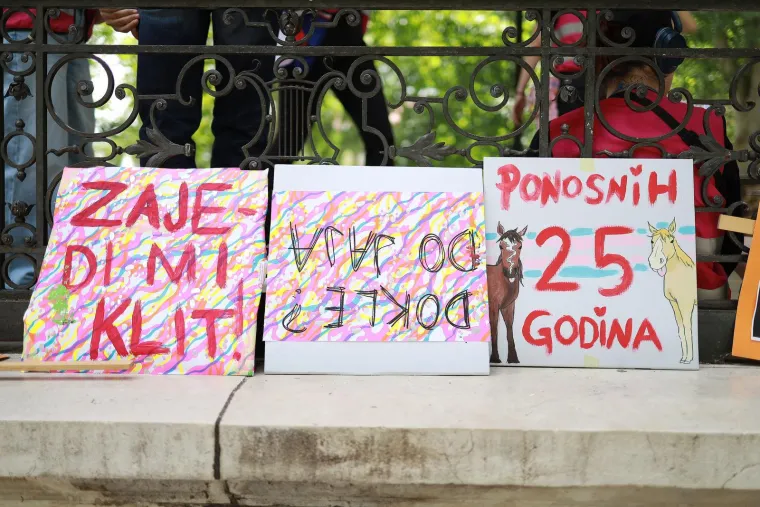 ZAJE-
DI MI
KLIT!
DOKLE?
DO JAJA
PONOSNIH
25
GODINA